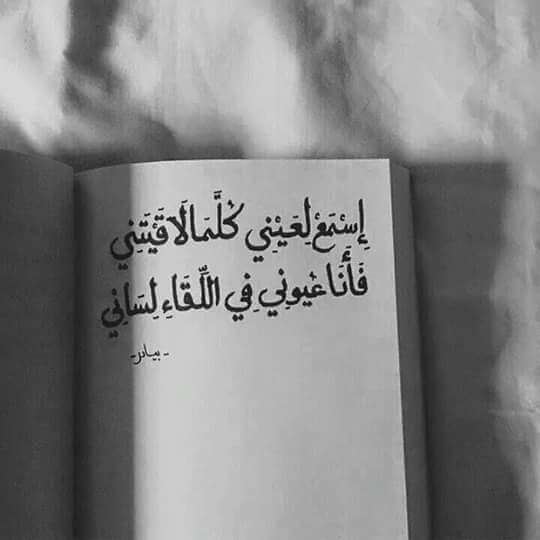 إِسْمَعْ لِعَيْنِي كُلَّمَا لَاقَيْتَنِي
فَأَنَا عُيُونِي فِي اللِّقَاءِ لِسَانِي
- بيادر -